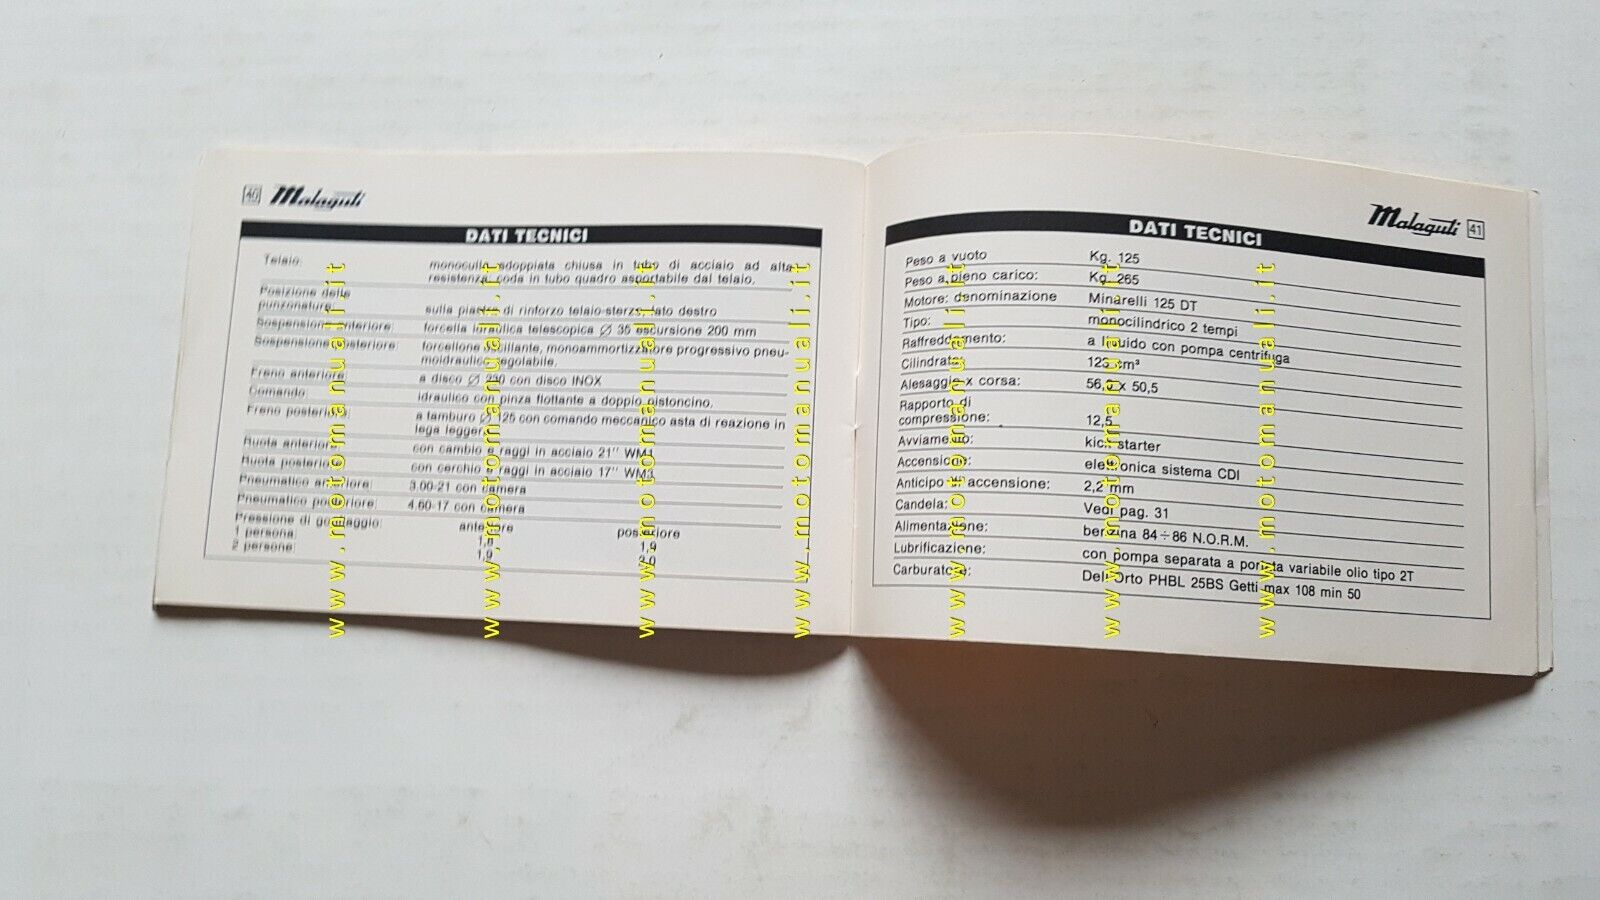 40 Malaguti
DATI TECNICI
Telaio: monoculla sdoppiata chiusa in tubo di acciaio ad alta
resistenza; coda in tubo quadro asportabile dal telaio.
Posizione delle
punzonature: sulla piastra di rinforzo telaio-sterzo, lato destro
Sospensione anteriore: forcella idraulica telescopica ∅ 35 escursione 200 mm
Sospensione posteriore: forcellone oscillante, monoammortizzatore progressivo pneu-
moidraulico regolabile.
Freno anteriore: a disco ∅ 230 con disco INOX
Comando idraulico con pinza flottante a doppio pistoncino.
Freno posteriore: a tamburo ∅ 125 con comando meccanico asta di reazione in
lega leggera
Ruota anteriore: con cambio e raggi in acciaio 21" WM1
Ruota posteriore: con cerchio e raggi in acciaio 17" WM3
Pneumatico anteriore: 3.00-21 con camera
Pneumatico posteriore: 4.60-17 con camera
Pressione di gonfiaggio: anteriore posteriore
1 persona: 1,8 1,9
2 persone: 1,9 2,0
Malaguti 41
DATI TECNICI
Peso a vuoto Kg. 125
Peso a pieno carico: Kg. 265
Motore: denominazione Minarelli 125 DT
Tipo: monocilindrico 2 tempi
Raffreddamento: a liquido con pompa centrifuga
Cilindrata: 125 cm³
Alesaggio x corsa: x 50,5
Rapporto di
compressione: 12,5
Avviamento: kick starter
Accensione: elettronica sistema CDI
Anticipo di accensione: 2,2 mm
Candela: Vedi pag. 31
Alimentazione: benzina 84÷86 N.O.R.M.
Lubrificazione: con pompa separata a portata variabile olio tipo 2T
Carburatore: Dell'Orto PHBL 25BS Getti max 108 min 50
www.motomanuali.it
www.motomanuali.it
www.motomanuali.it
www.motomanuali.it
www.motomanuali.it
www.motomanuali.it
www.motomanuali.it